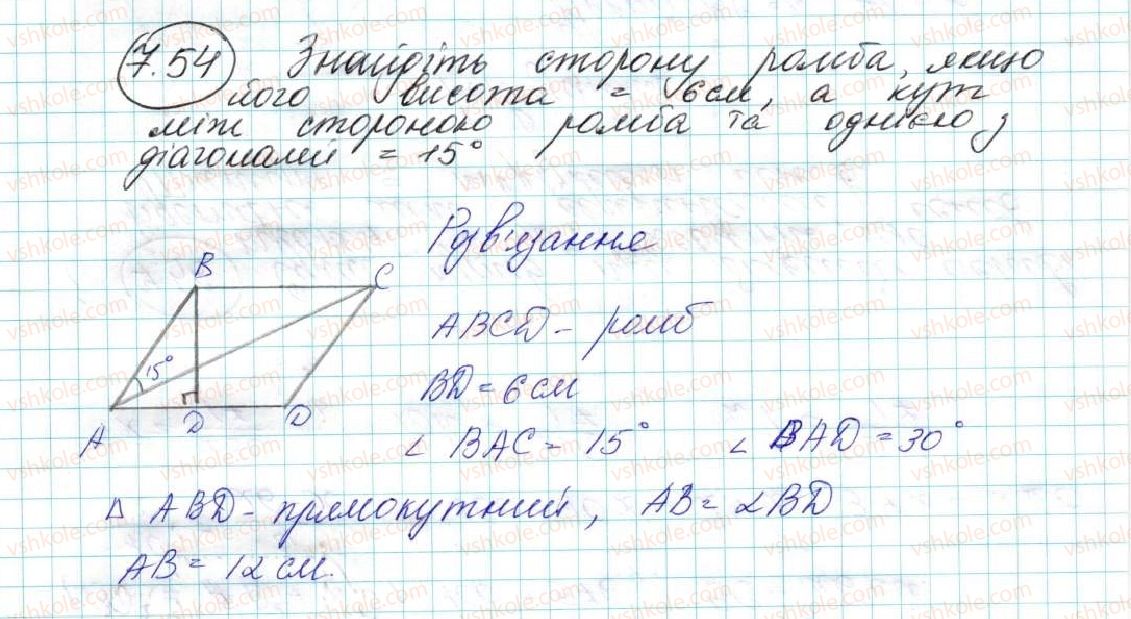 7.54 Знайдіть сторону ромба, якщо
його висота = 6см, а кут
між стороною ромба та однією з
діагоналей = 15°
Розв'язання
B C
15°
A D D
ABCD - ромб
BD = 6 см
∠ BAC = 15° ∠ BAD = 30°
△ ABD - прямокутний, AB = 2BD
AB = 12 см.
vshkole.com